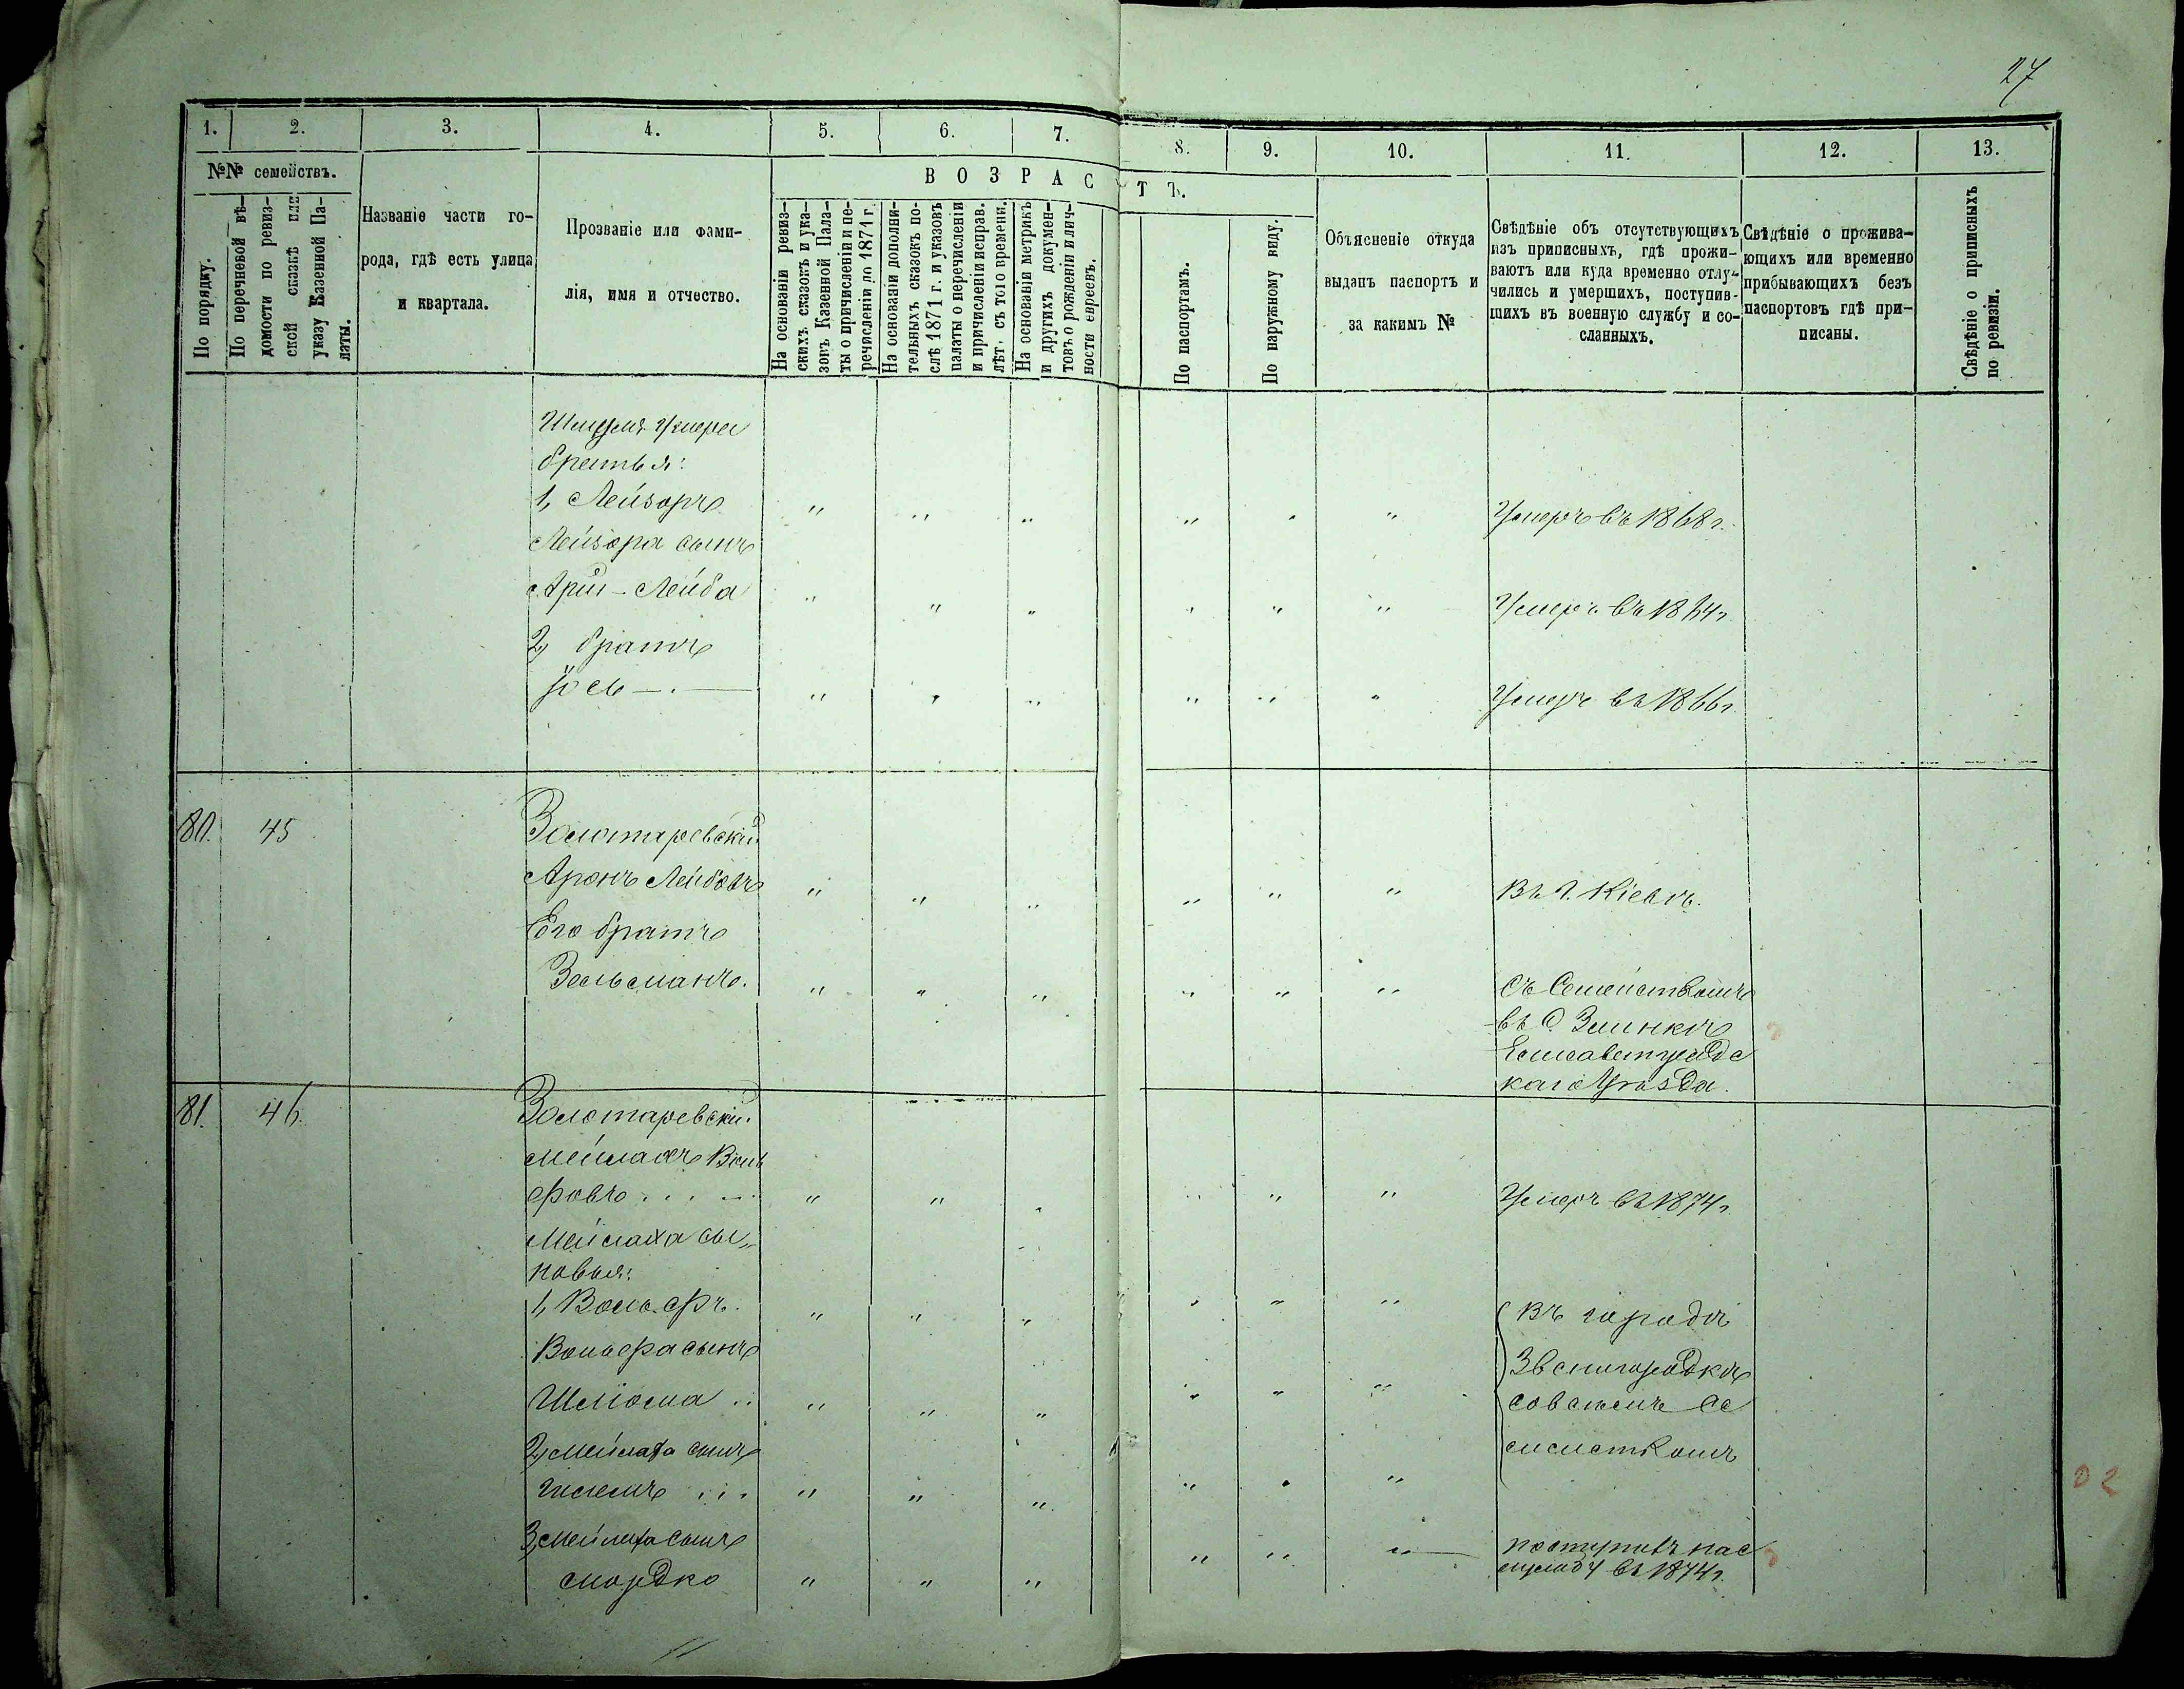 27
1. 2. 3. 4. 5. 6. 7. 8. 9. 10. 11. 12. 13.
№№ семействъ.
По порядку.
По перечневой вѣ-
домости по ревиз-
ской сказкѣ или
указу Казенной Па-
латы.
Названіе части го-
рода, гдѣ есть улица
и квартала.
Прозваніе или фами-
лія, имя и отчество.
ВОЗРАСТЪ.
На основаніи ревиз-
скихъ сказокъ и ука-
зовъ Казенной Пала-
ты о причисленіи и пе-
речисленіи до 1871 г.
На основаніи дополни-
тельныхъ сказокъ по-
слѣ 1871 г. и указовъ
палаты о перечисленіи
и причисленіи исправ.
лѣт. съ того времени.
На основаніи метрикъ
и другихъ докумен-
товъ о рожденіи и лич-
ности евреевъ.
По паспортамъ.
По наружному виду.
Объясненіе откуда
выданъ паспортъ и
за какимъ №
Свѣдѣніе объ отсутствующихъ
изъ приписныхъ, гдѣ прожи-
ваютъ или куда временно отлу-
чились и умершихъ, поступив-
шихъ въ военную службу и со-
сланныхъ.
Свѣдѣніе о прожива-
ющихъ или временно
прибывающихъ безъ
паспортовъ гдѣ при-
писаны.
Свѣдѣніе о приписныхъ
по ревизіи.
братья:
1, Лейзоръ " " " " " " Умеръ въ 1868 г.
Лейзора сынъ
Арій-Лейба " " " " " " Умеръ въ 1864 г.
2, братъ
Іось " " " " " " Умеръ въ 1866 г.
80. 45 Золотаревскій
Аронъ Лейбовъ " " " " " " Въ г. Кіевѣ.
Его братъ
Зельманъ. " " " " " " Съ Семействомъ
въ с. Злинкѣ
Елисаветградс
каго Уѣзда.
81. 46. Золотаревскій
Мейлахъ Воль
фовъ " " " " " " Умеръ въ 1874 г.
Мейлаха сы„
новья:
1, Вольфъ. " " " " " " Въ городѣ
Вольфа сынъ Звенигородкѣ
Шліома " " " " " " со всѣмъ се
2, Мейлаха сынъ мействомъ
" " " " " "
3, Мейлаха сынъ
Мордко " " " " " " поступилъ на с
лужбу въ 1874 г.